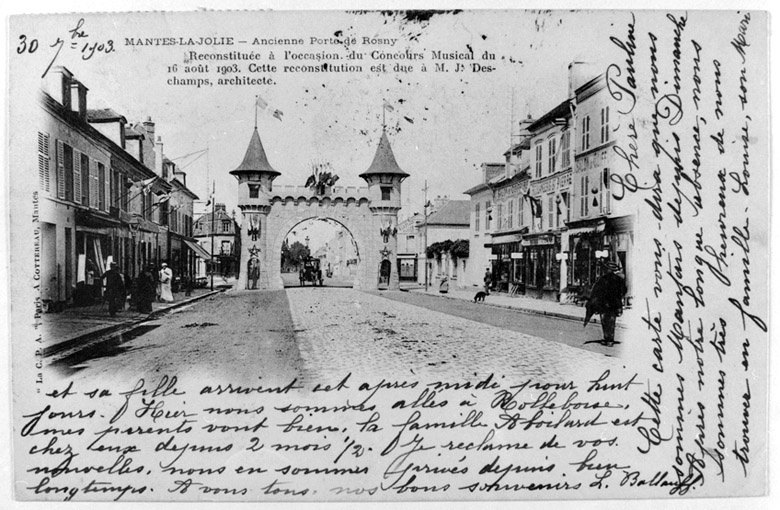 30 7bre 1903.
MANTES-LA-JOLIE – Ancienne Porte de Rosny
Reconstituée à l'occasion du Concours Musical du
16 août 1903. Cette reconstitution est due à M. J. Des-
champs, architecte.
"La C. P. A." Paris A COTTEREAU, Mantes
Chère Pauline
Cette carte vous dira que nous
sommes Mantais depuis Dimanche
Après notre longue absence, nous
sommes très heureux de nous
trouver en famille. Louise, son Mari
et sa fille arrivent cet après midi pour huit
jours. Hier nous sommes allés à Rolleboise,
mes parents vont bien, la famille Aboilard est
chez eux depuis 2 mois 1/2. Je réclame de vos
nouvelles, nous en sommes privés depuis bien
longtemps. A vous tous, nos bons souvenirs L.